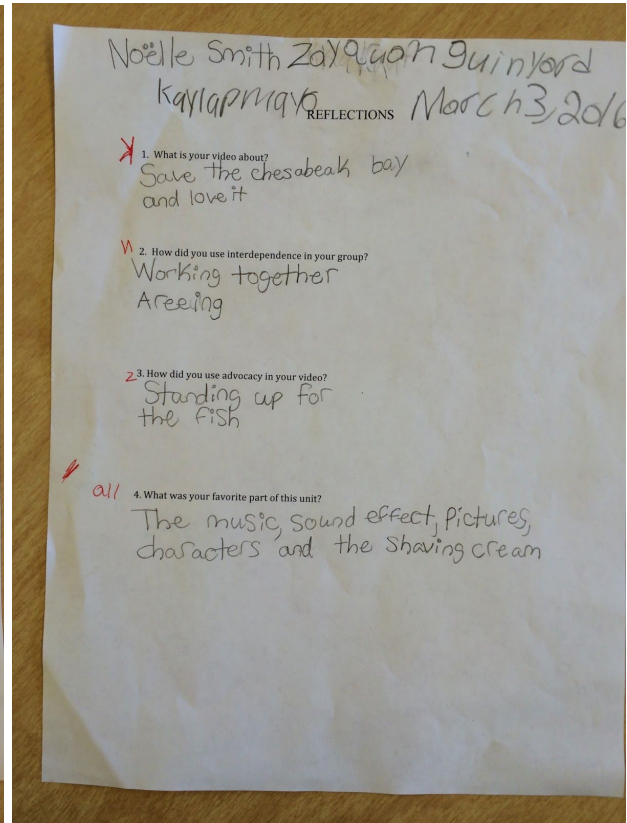 Noëlle Smith Zayquan guinyord
Kaylapmayo
REFLECTIONS March 3, 2016
K 1. What is your video about?
Save the chesabeak bay
and love it
N 2. How did you use interdependence in your group?
Working together
Areeing
Z 3. How did you use advocacy in your video?
Standing up for
the fish
all 4. What was your favorite part of this unit?
The music, sound effect, Pictures,
characters and the Shaving cream